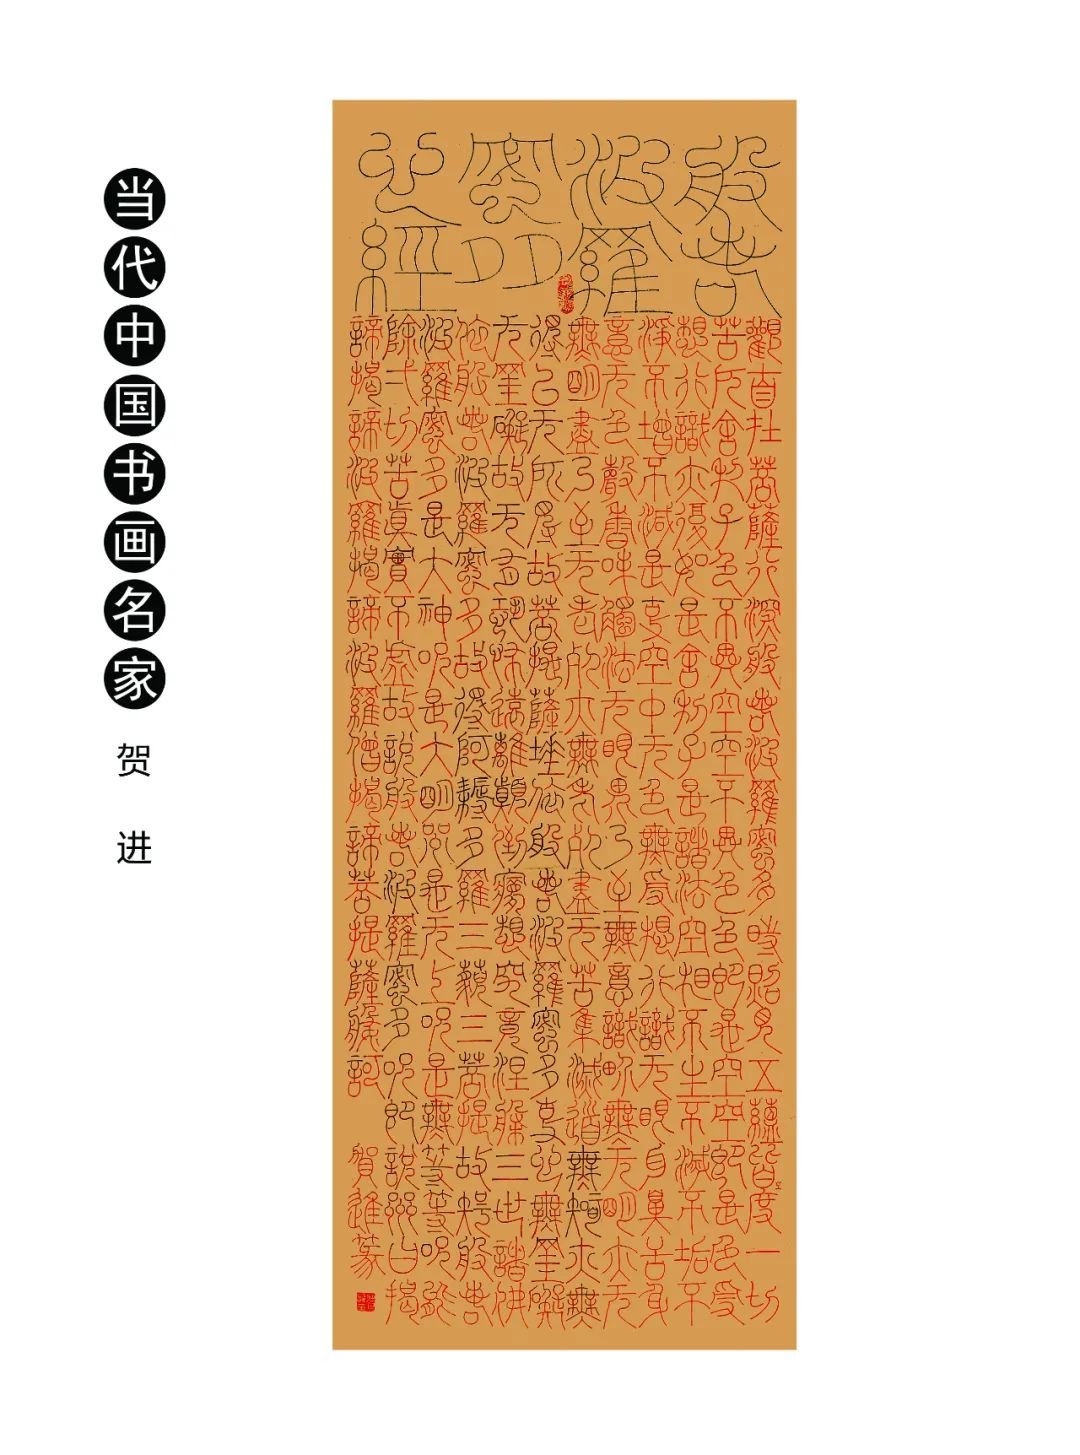 当代中国书画名家
贺进
般若
波羅
密多
心經
觀自在菩薩行深般若波羅密多時照見五蘊皆度一切
空
苦厄舍利子色不異空空不異色色即是空空即是色受
想行識亦復如是舍利子是諸法空相不生不滅不垢不
淨不增不減是故空中无色無受想行識无眼耳鼻舌身
意无色聲香味觸法无眼界乃至無意識界無无明亦无
無明盡乃至无老死亦無老死盡无苦集滅道無智亦無
得以无所得故菩提薩埵依般若波羅密多故心無罣礙
无罣礙故无有恐怖遠離顛倒夢想究竟涅槃三世諸佛
依般若波羅密多故得阿耨多羅三藐三菩提故知般若
波羅密多是大神咒是大明咒是无上咒是無等等咒能
除一切苦真實不虛故說般若波羅密多咒即說咒曰揭
諦揭諦波羅揭諦波羅僧揭諦菩提薩般訶
賀進篆